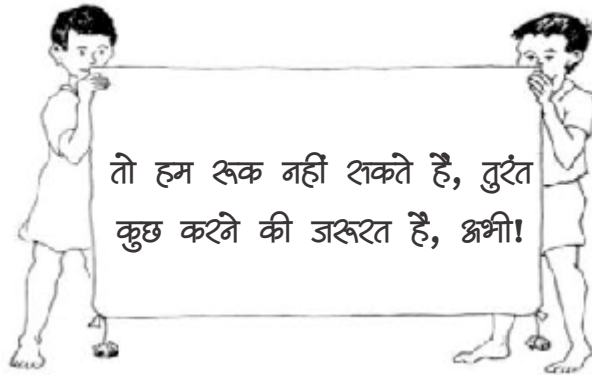 तो हम रूक नहीं सकते हैं, तुरंत
कुछ करने की जरूरत है, अभी!